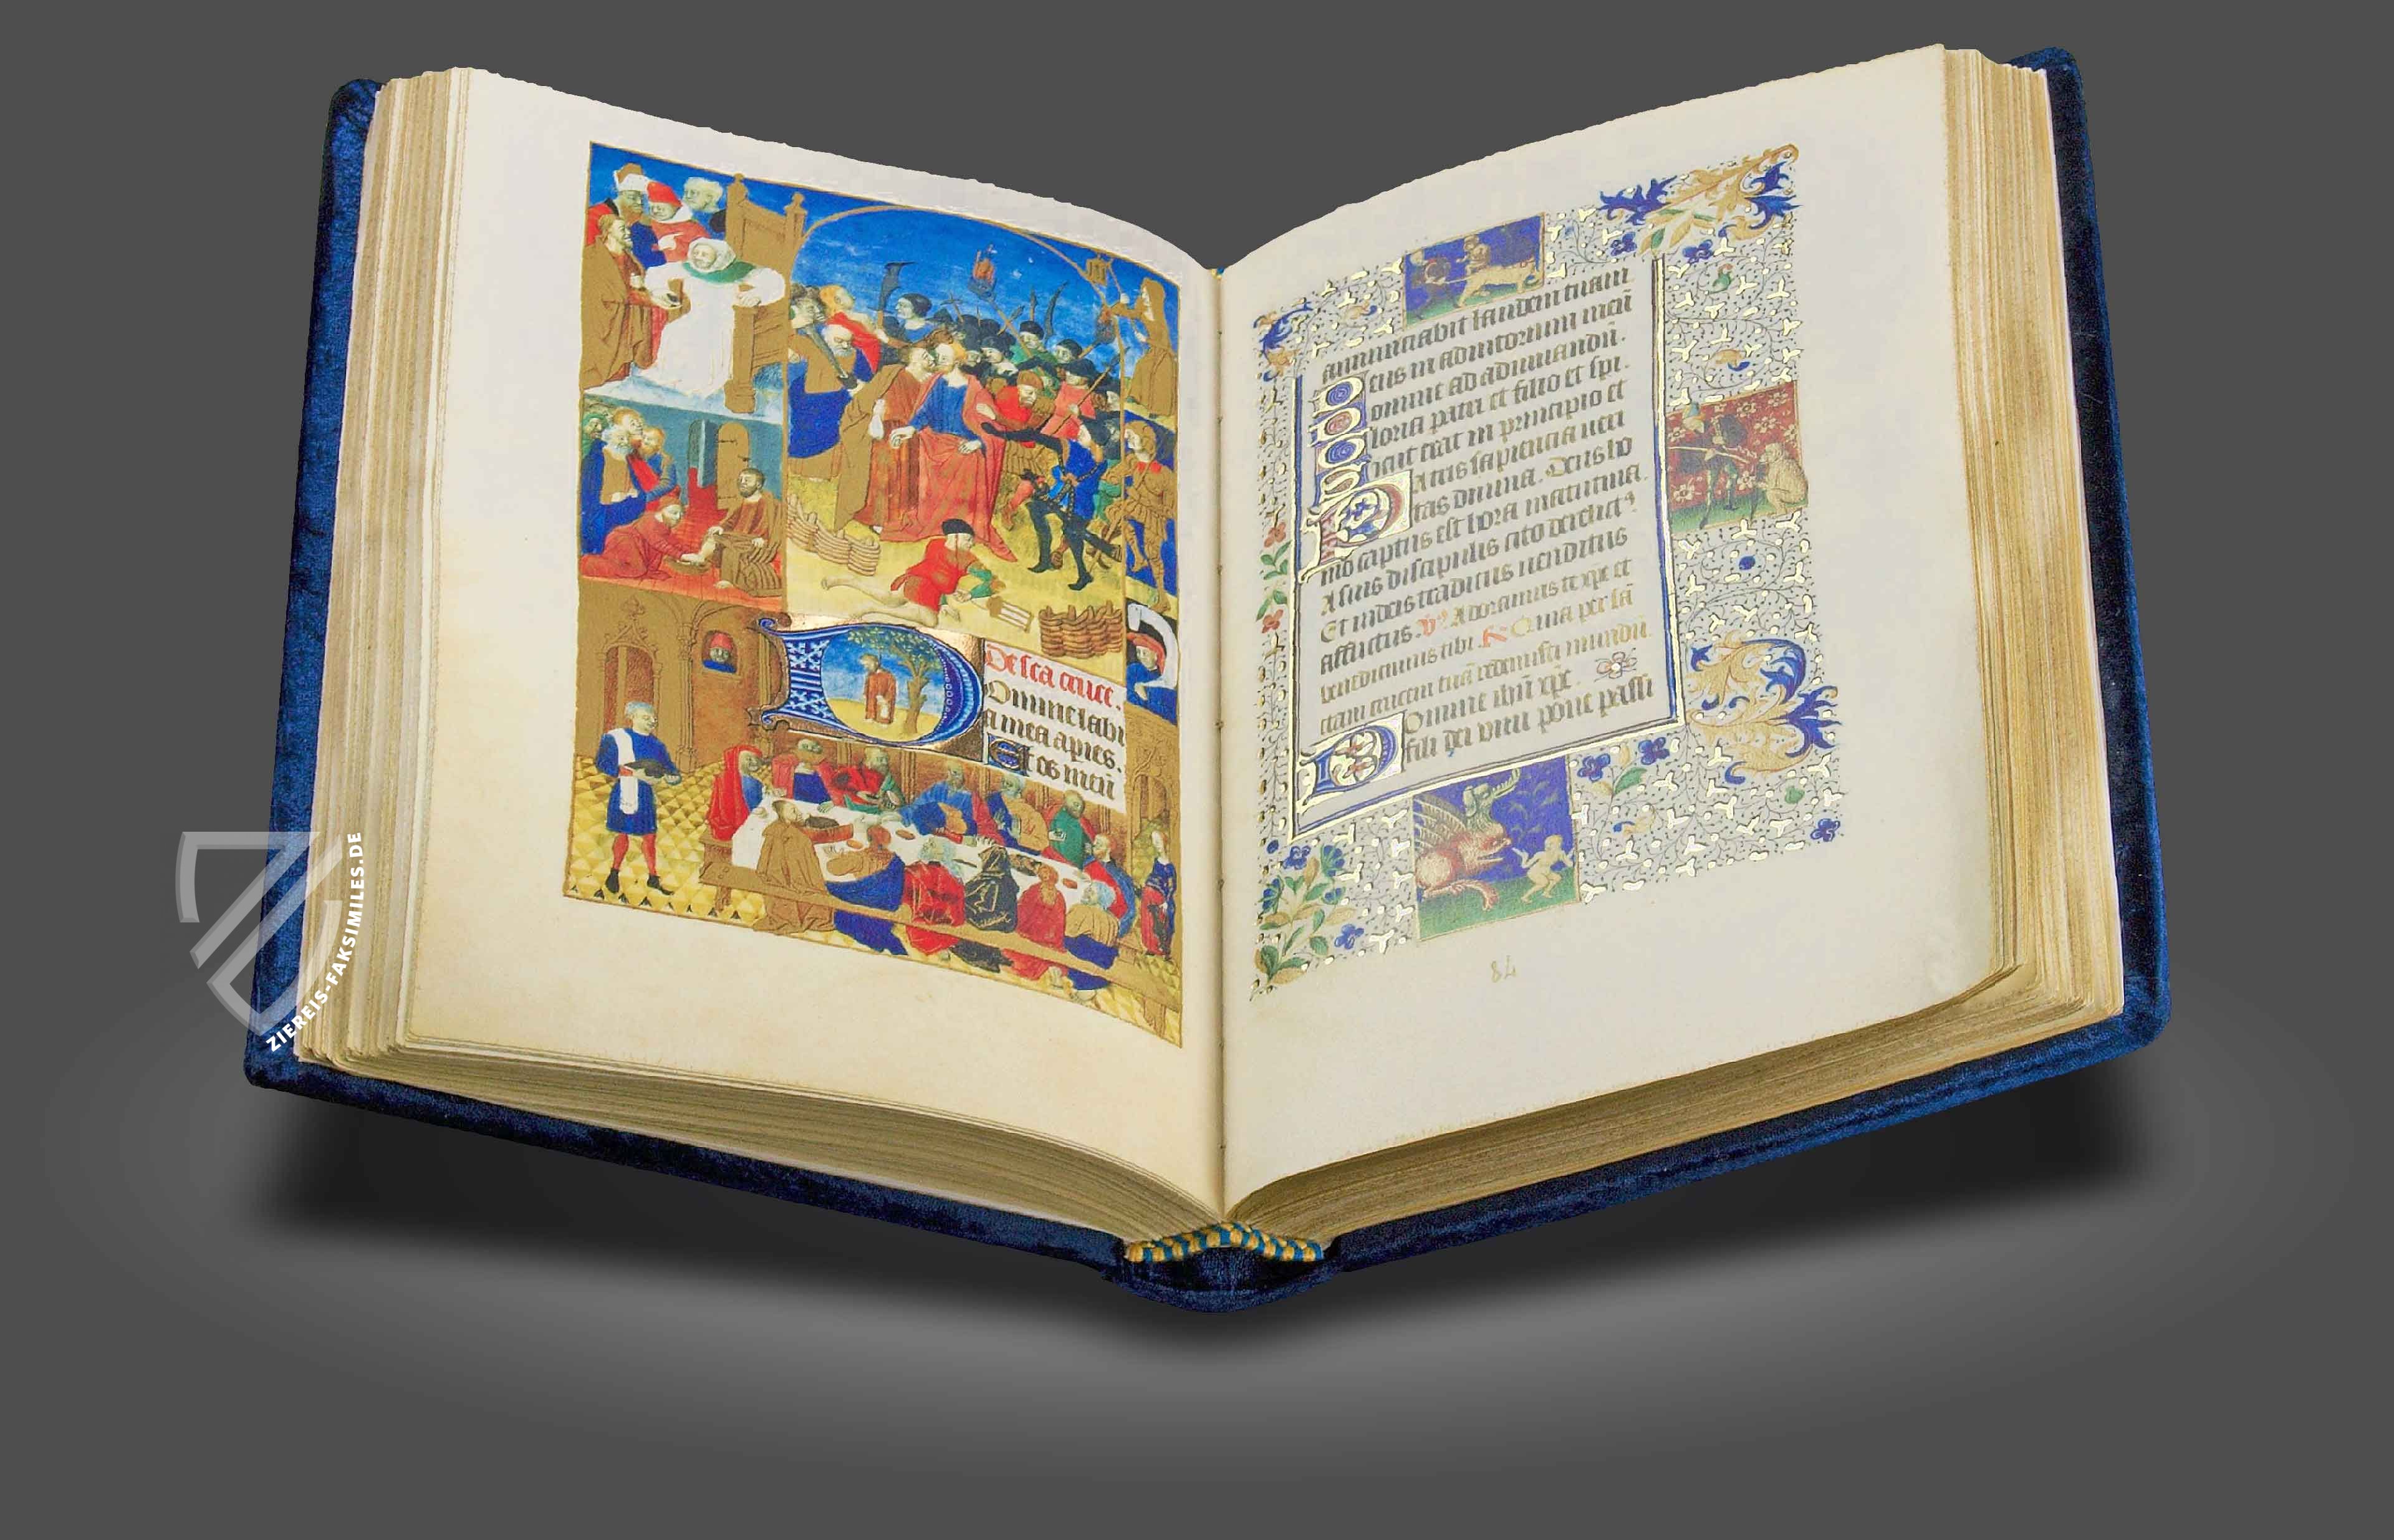 De sca cruce.
Omine labi
a mea apies.
Et os meū
annunciabit laudem tuam
Deus in adiutorium meū
Domine ad adiuuandū.
Gloria patri et filio et spi.
Sicut erat in principio et
Patris sapiencia ueri
tas diuina. Deus ho
mo captus est hora matutina.
A suis discipulis cito derelict9
Et iudeis traditus uenditus
afflictus. V9 Adoramus te xpe et
benedicimus tibi. R Quia per sā
ctam crucem tuā redemisti mundū.
Domine ihū xpe.
fili dei uiui pone passi
84
ZIEREIS-FAKSIMILES.DE